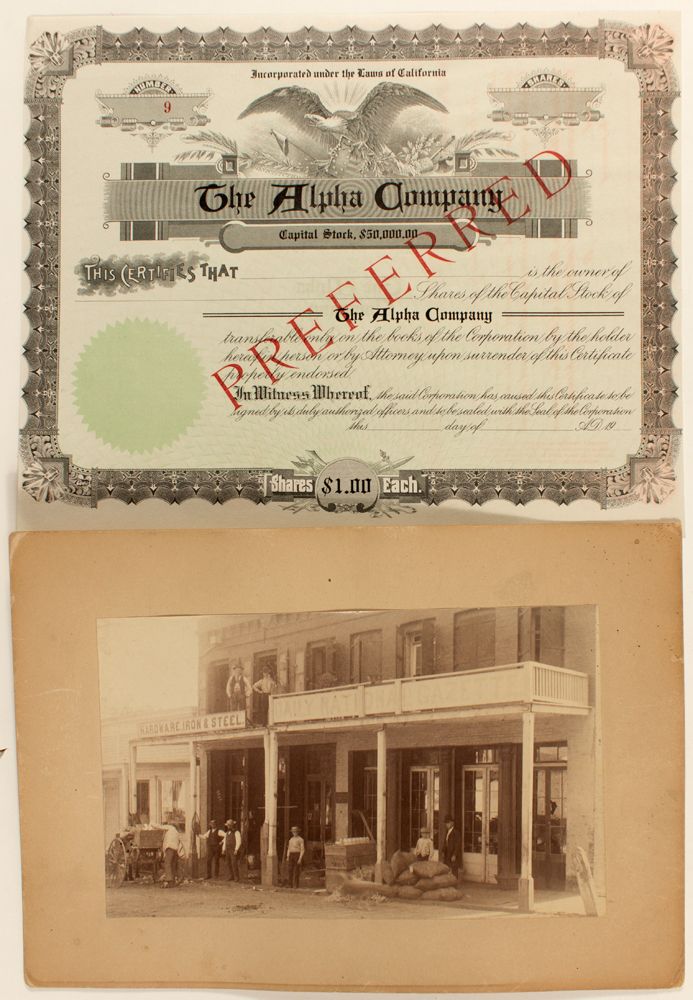 Incorporated under the Laws of California
NUMBER
9
SHARES
The Alpha Company
Capital Stock, $50,000.00
PREFERRED
THIS CERTIFIES THAT is the owner of
Shares of the Capital Stock of
The Alpha Company
transferable only on the books of the Corporation by the holder
hereof in person or by Attorney upon surrender of this Certificate
properly endorsed
In Witness Whereof, the said Corporation has caused this Certificate to be
signed by its duly authorized officers and to be sealed with the Seal of the Corporation
this day of A.D. 19
Shares $1.00 Each.
HARDWARE, IRON & STEEL.